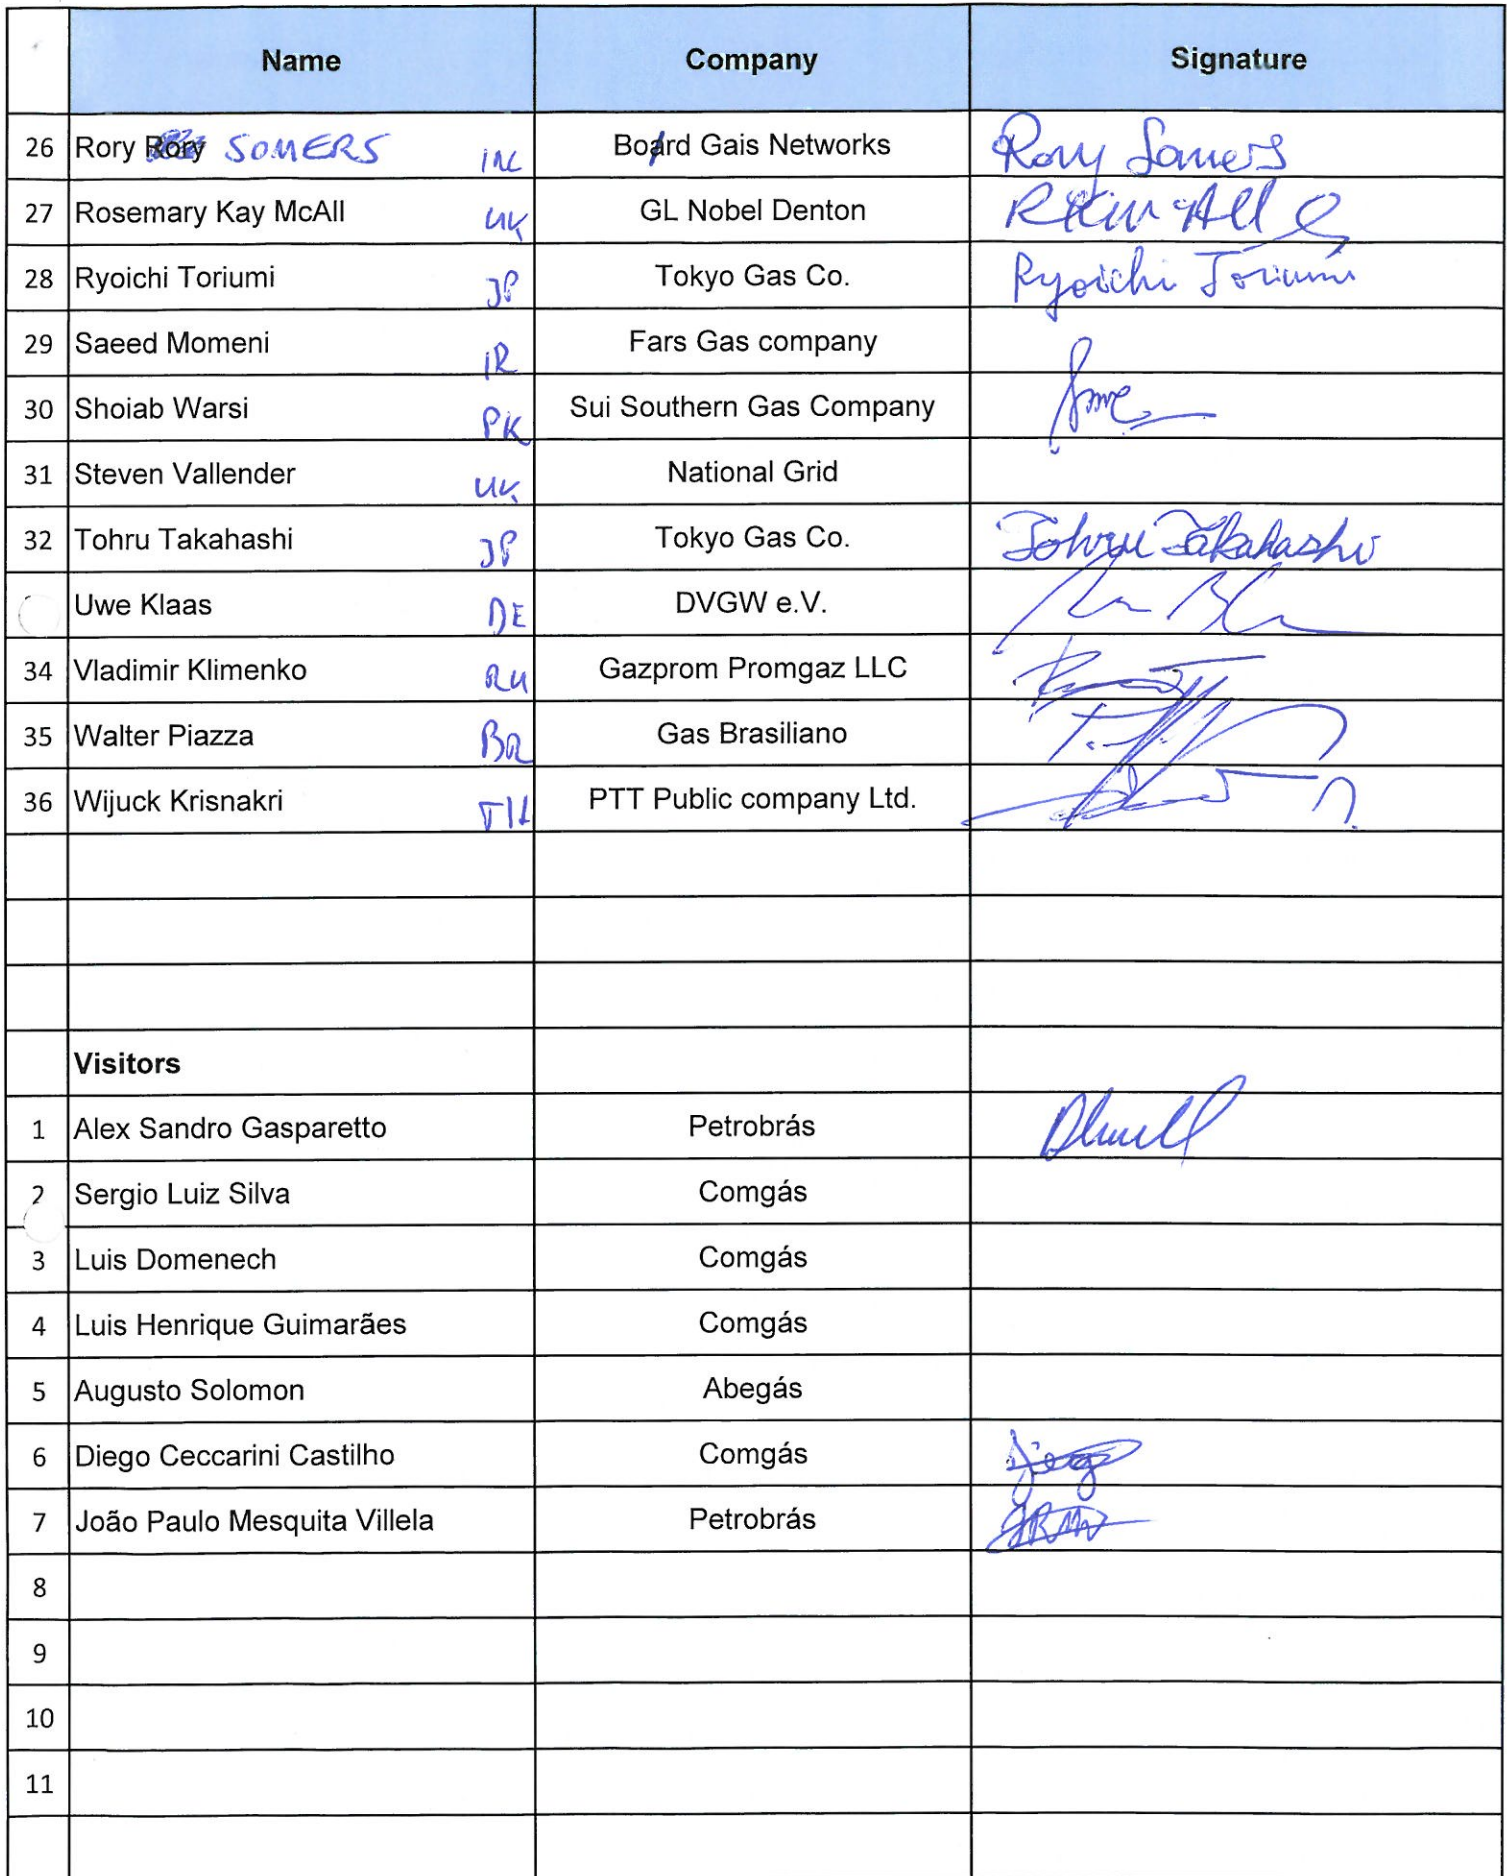 Name Company Signature
26 Rory Rory SOMERS IRL Board Gais Networks Rory Somers
27 Rosemary Kay McAll UK GL Nobel Denton RKMcAll
28 Ryoichi Toriumi JP Tokyo Gas Co. Ryoichi Toriumi
29 Saeed Momeni IR Fars Gas company
30 Shoiab Warsi PK Sui Southern Gas Company
31 Steven Vallender UK National Grid
32 Tohru Takahashi JP Tokyo Gas Co. Tohru Takahashi
Uwe Klaas DE DVGW e.V.
34 Vladimir Klimenko RU Gazprom Promgaz LLC
35 Walter Piazza BR Gas Brasiliano
36 Wijuck Krisnakri TH PTT Public company Ltd.
Visitors
1 Alex Sandro Gasparetto Petrobrás
2 Sergio Luiz Silva Comgás
3 Luis Domenech Comgás
4 Luis Henrique Guimarães Comgás
5 Augusto Solomon Abegás
6 Diego Ceccarini Castilho Comgás Diego
7 João Paulo Mesquita Villela Petrobrás
8
9
10
11